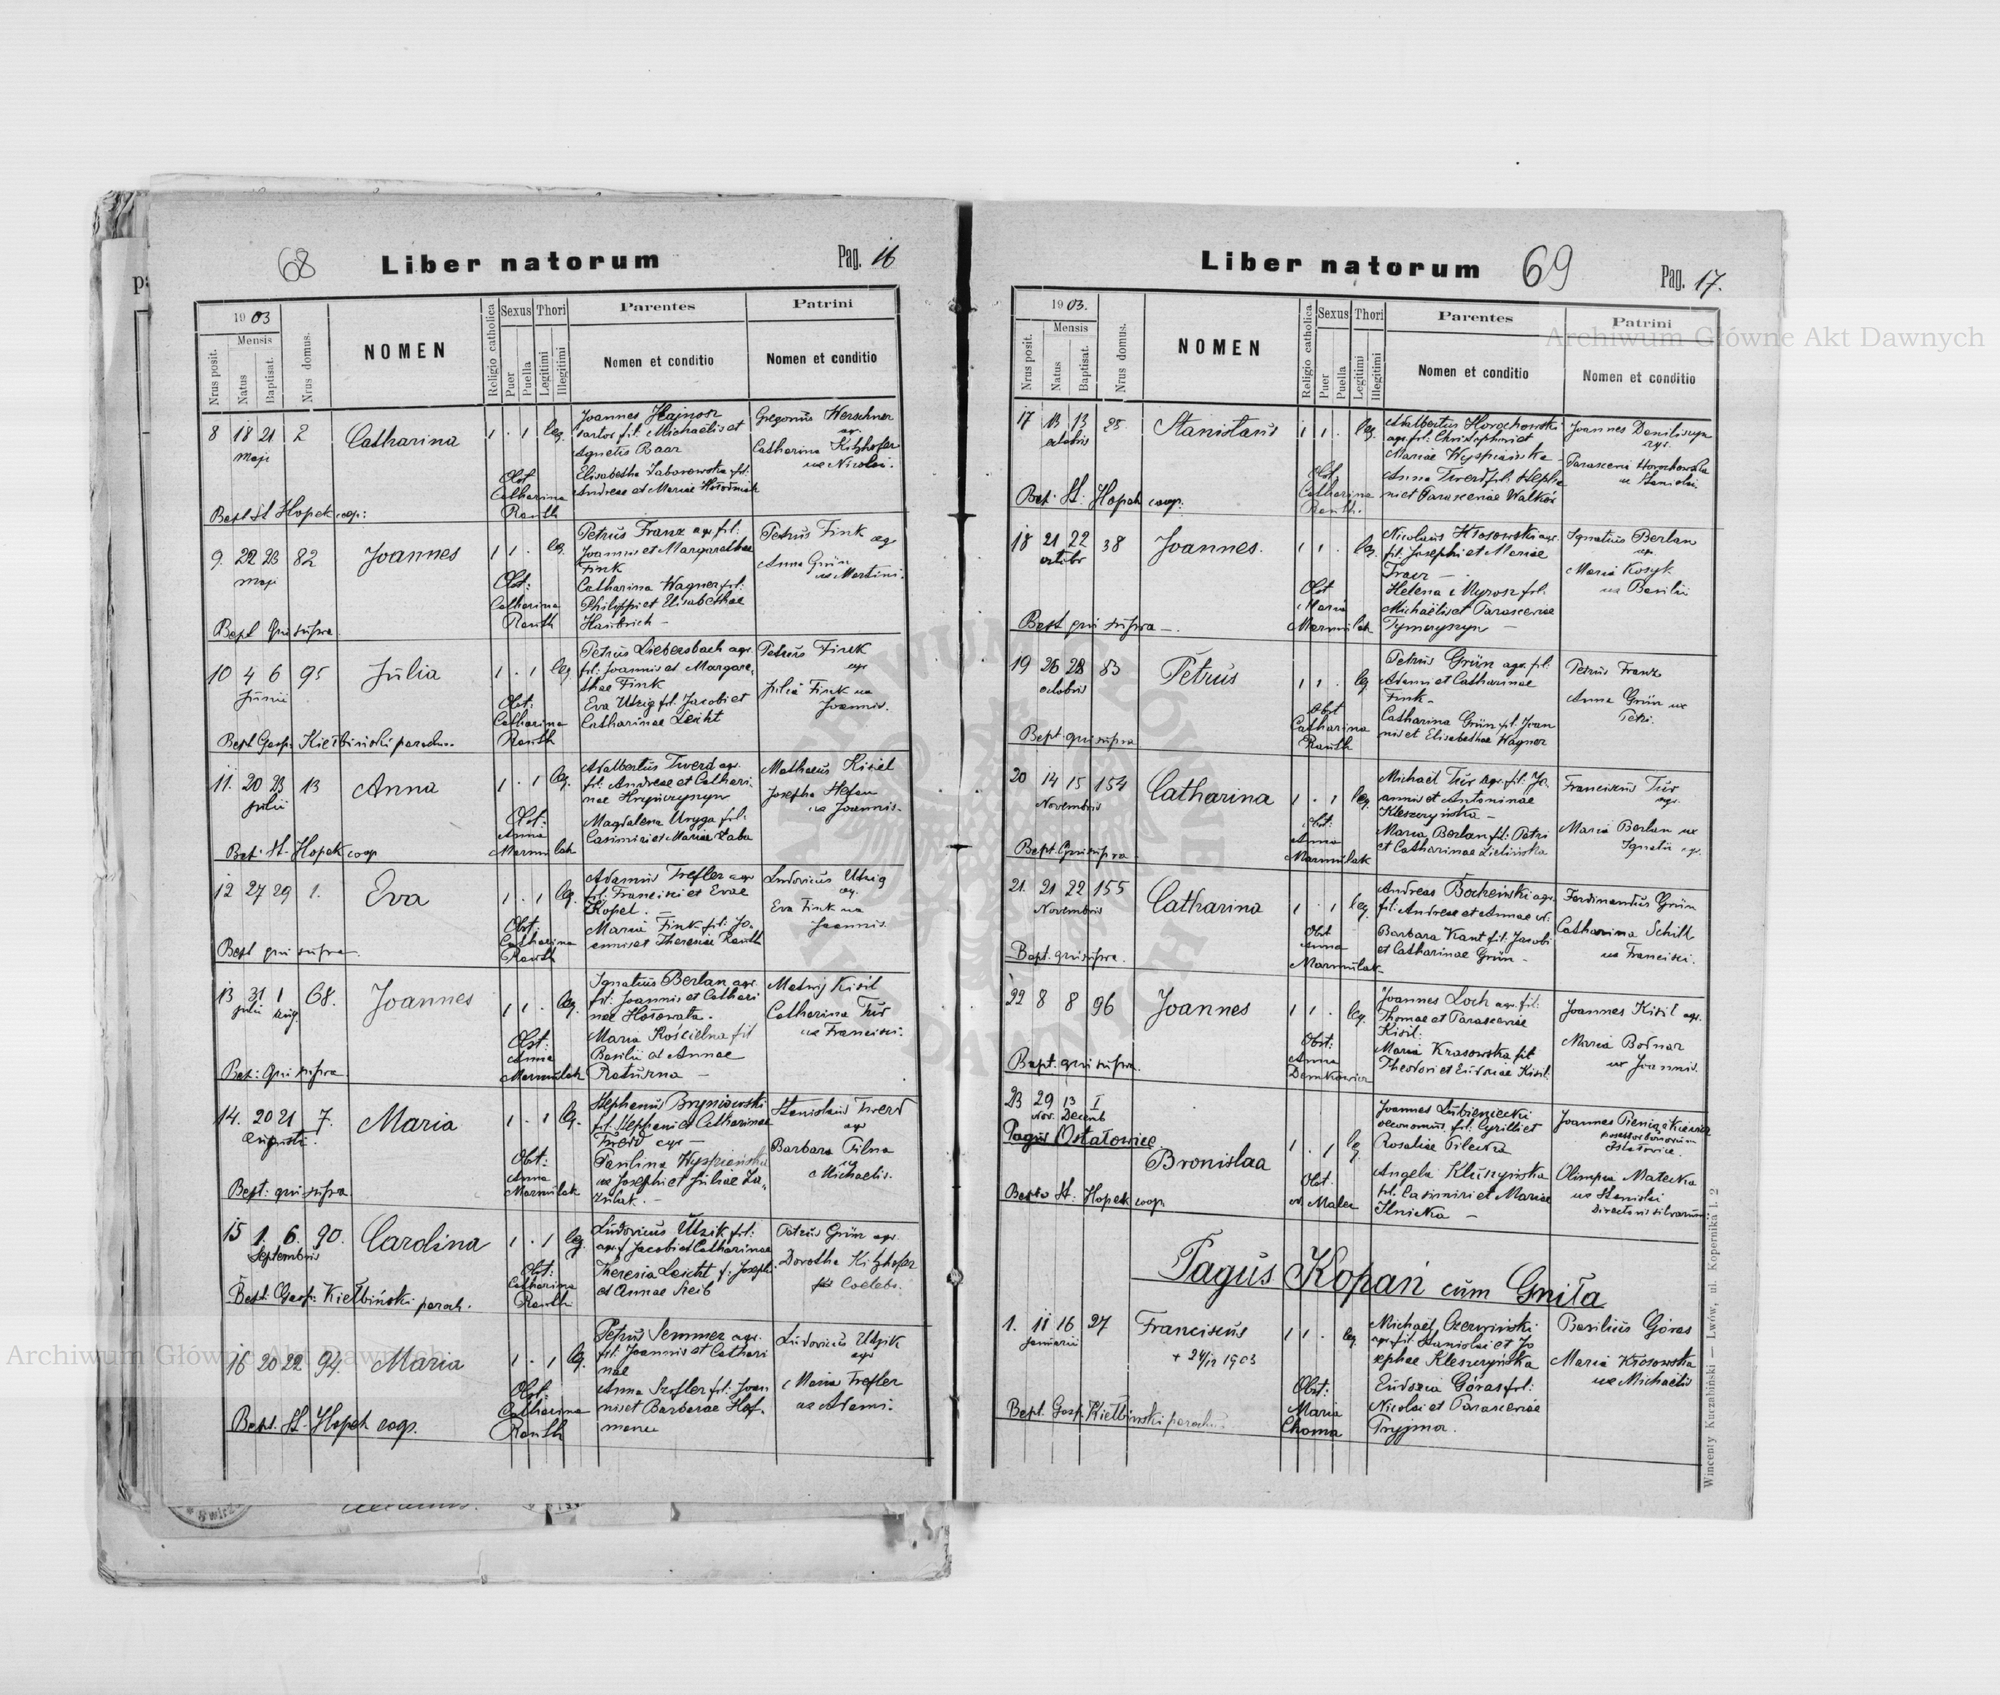 68
Liber natorum
Pag. 16
1903
Mensis
Nrus posit.
Natus
Baptisat.
Nrus domus.
NOMEN
Religio catholica
Sexus
Puer
Puella
Thori
Legitimi
Illegitimi
Parentes
Nomen et conditio
Patrini
Nomen et conditio
8 18 21 2 Catharina 1 . 1 leg.
Maji
Joannes Hajnosz
sartor fil. Michaelis et
Agnetis Baar
Elisabetha Zaborowska fil.
Andreae et Mariae
Gregorius Herschner
agr.
Catharina Kitzhofer
ux Nicolai.
Obst
Catharina
Rauth
Bapt St Hopek coop:
9. 22 23 82 Joannes 1 1 . leg.
Maji
Petrus Franz agr. fil:
Joannis et Margarethae
Fink
Catharina Wagner fil:
Philippi et Elisabethae
Petrus Fink agr
Anna Grün
ux Martini.
Obst:
Catharina
Rauth
Bapt qui supra
10 4 6 95 Julia 1 . 1 leg
Junii
Petrus Liebersbach agr.
fil: Joannis et Margare-
thae Fink
Eva Utzig fil. Jacobi et
Catharinae Leicht
Petrus Fink
agr
Julia Fink ux
Joannis.
Obst:
Catharina
Rauth
Bapt Gasp: Kiełbiński paroch.
11. 20 23 13 Anna 1 . 1 leg.
Julii
Adalbertus Twerd agr.
fil: Andreae et Cathari
nae Hryńczyszyn
Magdalena Uryga fil:
Casimiri et Mariae Łaba
Mathaeus Kisiel
Josepha Stefan
ux Joannis.
Obst:
Anna
Marmulak
Bap: St. Hopek coop
12 27 29 1. Eva 1 . 1 leg.
Adamus Trefler agr
fil: Francisci et Evae
Kopel. —
Maria Fink fil: Jo-
annis et Theresiae Rauth
Ludovicus Utzig
agr.
Eva Fink ux
Joannis.
Obst:
Catharina
Rauth
Bapt qui supra
13 31 1 68. Joannes 1 1 . leg.
Julii Aug.
Ignatius Berlan agr.
fil: Joannis et Cathari
nae Hołowata.
Maria Kościelna fil
Basilii et Annae
Raturna —
Matwij Kisil
Catharina Tur
ux Francisci.
Obst:
Anna
Marmulak
Bap: qui supra
14. 20 21 7. Maria 1 . 1 leg.
Augusti.
Stephanus Bryniawski
fil. Stephani et Catharinae
Twerd agr —
Paulina Wyspiańska
ux Josephi et Juliae Za-
Stanislaus Twerd
agr
Barbara Pilna
ux
Michaelis.
Obst:
Anna
Marmulak
Bapt: qui supra
15 1. 6. 90. Carolina 1 . 1 leg.
Septembris
Ludovicus Utzik fil:
agr. f Jacobi et Catharinae
Theresia Leicht f: Josephi
et Annae Keib
Petrus Grün agr.
Dorothea Kitzhofer
Coelebs.
Obst:
Catharina
Rauth
Bapt: Gasp: Kiełbiński paroch.
16 20 22 94. Maria 1 . 1 leg.
Petrus Semmer agr.
fil: Joannis et Cathari
nae
Anna Szefler fil: Joan
nis et Barbarae Hof-
Ludovicus Utzik
agr
Maria Trefler
ux Adami.
Obst:
Catharina
Rauth
Bapt. St. Hopek coop.
Liber natorum
69
Pag. 17.
1903.
Mensis
Nrus posit.
Natus
Baptisat.
Nrus domus.
NOMEN
Religio catholica
Sexus
Puer
Puella
Thori
Legitimi
Illegitimi
Parentes
Nomen et conditio
Patrini
Nomen et conditio
17 13 13 25. Stanislaus 1 1 . leg.
octobris
Adalbertus Horochowski
agr. fil: Christophori et
Mariae Wyspiańska —
Anna Twerd fil: Stepha
ni et Parasceviae Walków
Joannes Daniliszyn
agr.
Parascevia Horochowska
ux Stanislai
Obst.
Catharina
Rauth.
Bapt: St. Hopek coop.
18 21 22 38 Joannes. 1 1 . leg.
octobr
Nicolaus Kłosowski agr.
fil. Josephi et Mariae
Tracz —
Helena Myrosz fil.
Michaëlis et Parasceviae
Tymczyszyn —
Ignatius Berlan
agr.
Maria Kosyk
ux Basilii
Obst
Maria
Marmulak
Bapt qui supra —.
19 26 28 83 Petrus 1 1 . leg
octobris
Petrus Grün agr. fil:
Adami et Catharinae
Fink —
Catharina Grün fil: Joan
nis et Elisabethae Wagner
Petrus Franz
Anna Grün ux
Petri.
Obst
Catharina
Rauth
Bapt. qui supra
20 14 15 154 Catharina 1 . 1 leg.
Novembris
Michael Tur agr. fil: Jo.
annis et Antoninae
Kleszczyńska —
Maria Berlan fil: Petri
et Catharinae Zielińska
Franciscus Tur
agr.
Maria Berlan ux
Ignatii agr.
Obst:
Anna
Marmulak
Bapt. Qui supra
21. 21 22 155 Catharina 1 . 1 leg.
Novembris
Andreas Bocheński agr.
fil: Andreae et Annae
Barbara Kant fil: Jacobi
et Catharinae Grün —
Ferdinandus Grün
Catharina Schilk
ux Francisci.
Obst
Anna
Marmulak
Bapt. qui supra.
22 8 8 96 Joannes 1 1 . leg.
Joannes Loch agr. fil:
Thomae et Parasceviae
Kisil:
Maria Krasowska fil
Theodori et Eudociae Kisil.
Joannes Kisil agr.
Maria Bodnar
ux Joannis.
Obst:
Anna
Demkowicz
Bapt. qui supra.
23 29 13 I
Nov. Decemb
Pagus Ostałowice.
Bronislaa 1 . 1 lg
Joannes Lubieniecki
oeconomus. fil: Cyrilli et
Rosaliae Pilecka
Angela Kluszyńska
fil. Casimiri et Mariae
Ilnicka —
Joannes Pieniążkiewicz
possessor bonorum
Ostałowice.
Olimpia Małecka
ux Stanislai
Directoris silvarum.
Obst.
Bapt. St: Hopek coop.
Pagus Kopań cum Gniła
1. 11 16 27 Franciscus 1 1 . leg.
Januarii
+ 24/12 1903
Michael Czerwiński
agr. fil. Stanislai et Jo
sephae Kleszczyńska
Eudocia Góras fil:
Nicolai et Parasceviae
Pryjma.
Basilius Góras
Maria Krosowska
ux Michaëlis
Obst:
Maria
Choma
Bapt. Gasp. Kiełbiński paroch.
Wincenty Kuczabiński — Lwów, ul. Kopernika l. 2
Archiwum Główne Akt Dawnych
Archiwum Główne Akt Dawnych